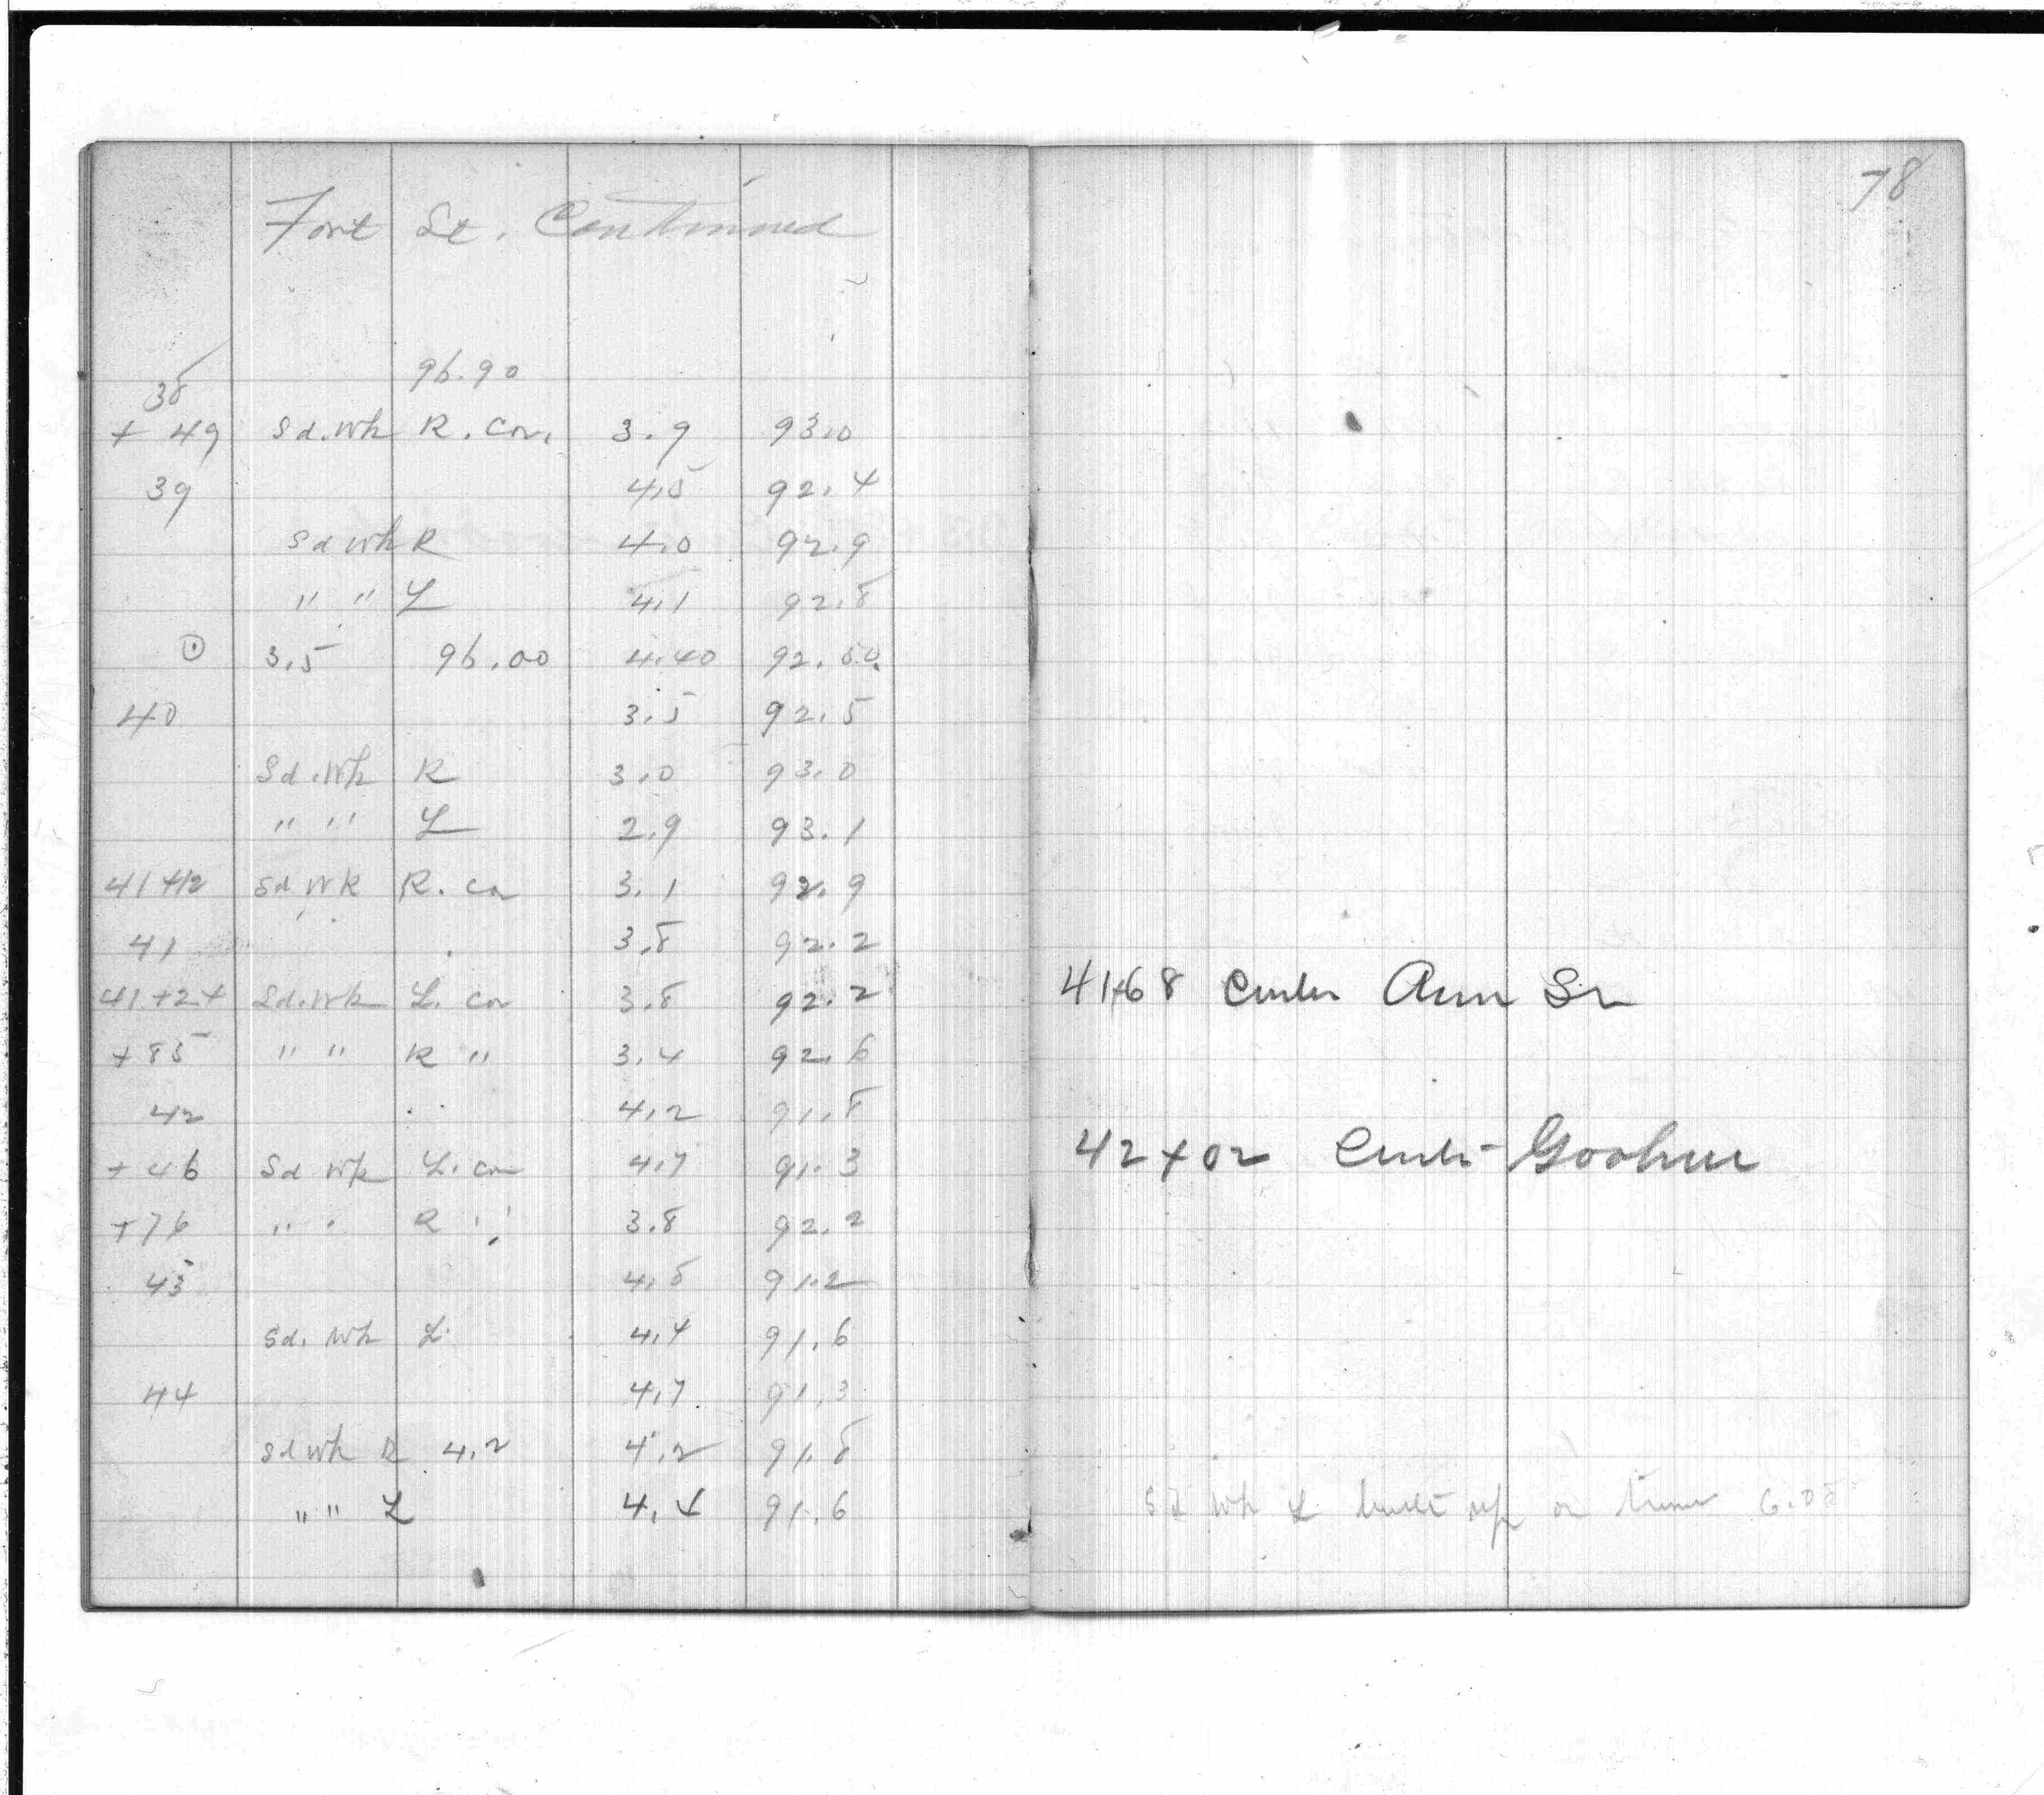 Fort St. Continued
78
96.90
38
+ 49 Sd.Wk R. Cor. 3.9 93.0
39 4.5 92.4
Sd Wk R 4.0 92.9
" " L 4.1 92.8
⊙ 3.5 96.00 4.40 92.50
40 3.5 92.5
Sd.Wk R 3.0 93.0
" " L 2.9 93.1
41+12 Sd Wk R. Cor 3.1 92.9
41 3.8 92.2
41+24 Sd.Wk L. Cor 3.8 92.2
41+68 Center Ann St
+85 " " R " 3.4 92.6
42 4.2 91.8
+46 Sd Wk L. Cor 4.7 91.3
42+02 Center Goohue
+76 " " R " 3.8 92.2
43 4.8 91.2
Sd. Wk L 4.4 91.6
44 4.7 91.3
Sd Wk R 4.2 4.2 91.8
" " L 4.4 91.6
Sd Wk L built up on 6.05